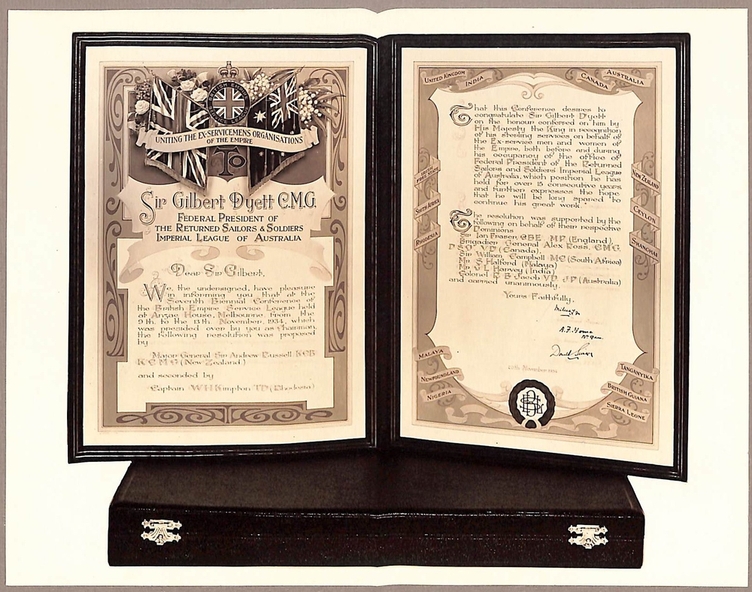 UNITING THE EX-SERVICEMENS ORGANISATIONS
OF THE EMPIRE
TO
Sir Gilbert Dyett C.M.G.
FEDERAL PRESIDENT OF
THE RETURNED SAILORS & SOLDIERS
IMPERIAL LEAGUE OF AUSTRALIA
Dear Sir Gilbert,
We, the undersigned, have pleasure
in informing you that at the
Seventh Biennial Conference of
the British Empire Service League held
at Anzac House, Melbourne from the
9th to the 13th November, 1934, which
was presided over by you as Chairman,
the following resolution was proposed
by
Major General Sir Andrew Russell KCB
K C M G (New Zealand)
and seconded by
Captain W H Kimpton TD (Rhodesia)
UNITED KINGDOM
INDIA
CANADA
AUSTRALIA
That this Conference desires to
congratulate Sir Gilbert Dyett
on the honour conferred on him by
His Majesty the King in recognition
of his sterling services on behalf of
the Ex-service men and women of
the Empire, both before and during
his occupancy of the office of
Federal President of the Returned
Sailors and Soldiers Imperial League
of Australia, which position he has
held for over 15 consecutive years
and further expresses the hope
that he will be long spared to
continue his great work.
The resolution was supported by the
following on behalf of their respective
Dominions
Sir Ian Fraser CBE MP (England),
Brigadier General Alex Ross, C.M.G.
D S O V D (Canada),
Sir William Campbell MC (South Africa)
Mr S Halford (Malaya)
Mr G L Harvey (India)
Colonel R B Jacob VD JP (Australia)
and carried unanimously.
Yours Faithfully,
SOUTH AFRICA
RHODESIA
NEW ZEALAND
CEYLON
SHANGHAI
MALAYA
NEWFOUNDLAND
NIGERIA
TANGANYIKA
BRITISH GUIANA
SIERRA LEONE